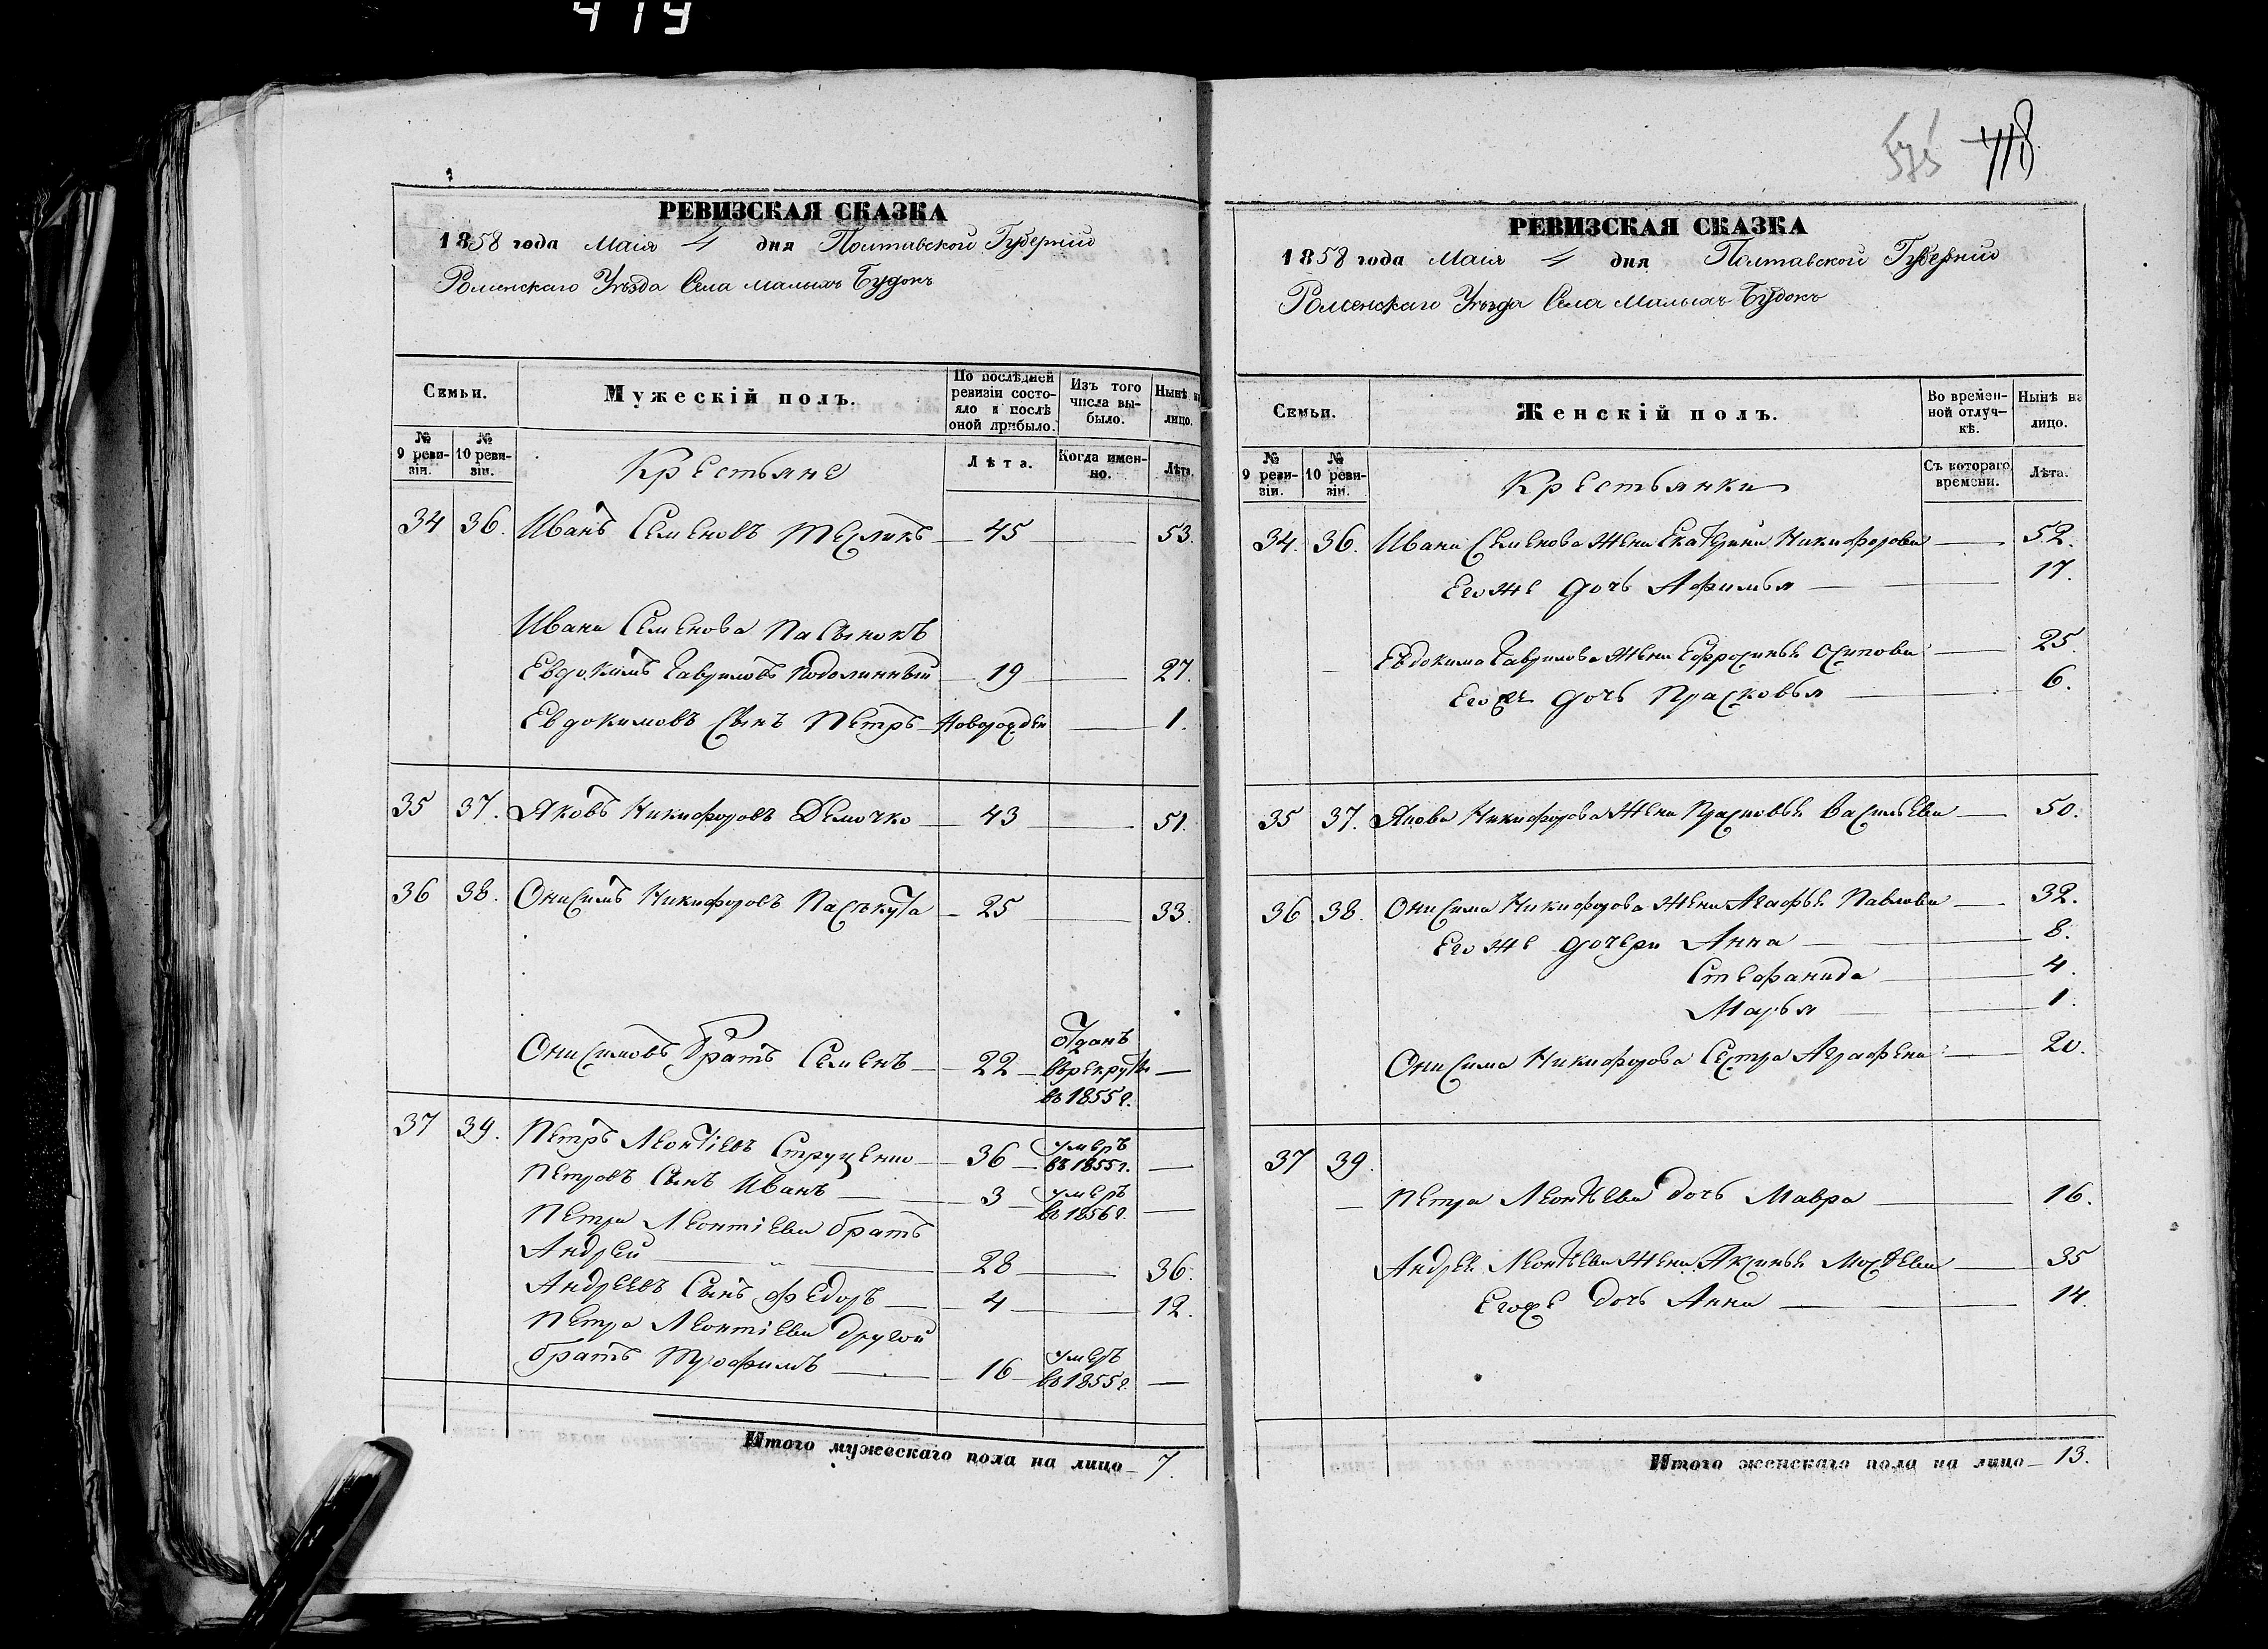 419
РЕВИЗСКАЯ СКАЗКА
1858 года Маія 4 дня Полтавской Губерніи
Роменскаго Уѣзда Села Малыхъ Будокъ
Семьи.
Мужескій полъ.
По послѣдней ревизіи состояло и послѣ оной прибыло.
Изъ того числа выбыло.
Нынѣ на лицо.
№ 9 ревизіи.
№ 10 ревизіи.
Крестьяне
Лѣта.
Когда именно.
Лѣта.
34 36. Иванъ Семеновъ Тесликъ 45 53.
Ивана Семенова Пасынокъ
Евдокимъ Гавриловъ Подолинный 19 27.
Евдокимовъ Сынъ Петръ Новорожден 1.
35 37. Яковъ Никифоровъ Демочко 43 51.
36 38. Онисимъ Никифоровъ Пасѣкута 25 33.
Онисимовъ братъ Семенъ 22 Отданъ
врекруты
въ 1855 г.
37 39. Петръ Леонтіевъ Струценко 36 умеръ
въ 1855 г.
Петровъ Сынъ Иванъ 3 умеръ
въ 1856 г.
Петра Леонтіева братъ
Андрей 28 36.
Андреевъ Сынъ Федоръ 4 12.
Петра Леонтіева другой
братъ Трофимъ 16 умеръ
въ 1855 г.
Итого мужескаго пола на лицо 7.
418
РЕВИЗСКАЯ СКАЗКА
1858 года Маія 4 дня Полтавской Губерніи
Роменскаго Уѣзда Села Малыхъ Будокъ
Семьи.
Женскій полъ.
Во временной отлучкѣ.
Нынѣ на лицо.
№ 9 ревизіи.
№ 10 ревизіи.
Крестьянки
Съ котораго времени.
Лѣта.
34. 36. Ивана Семенова Жена Екатерина Никифорова 52.
Его же дочь Афимья 17.
Евдокима Гаврилова Жена Ефросинья Осипова 25.
Его же дочь Прасковья 6.
35 37. Якова Никифорова Жена Прасковья Васильева 50.
36 38. Онисима Никифорова Жена Агафья Павлова 32.
Его же дочери Анна 8.
Стефанида 4.
Марья 1.
Онисима Никифорова Сестра Аграфена 20.
37 39.
Петра Леонтьева дочь Мавра 16.
Андрея Леонтьева Жена Аксинья Мосѣева 35
Его же дочь Анна 14.
Итого женскаго пола на лицо 13.